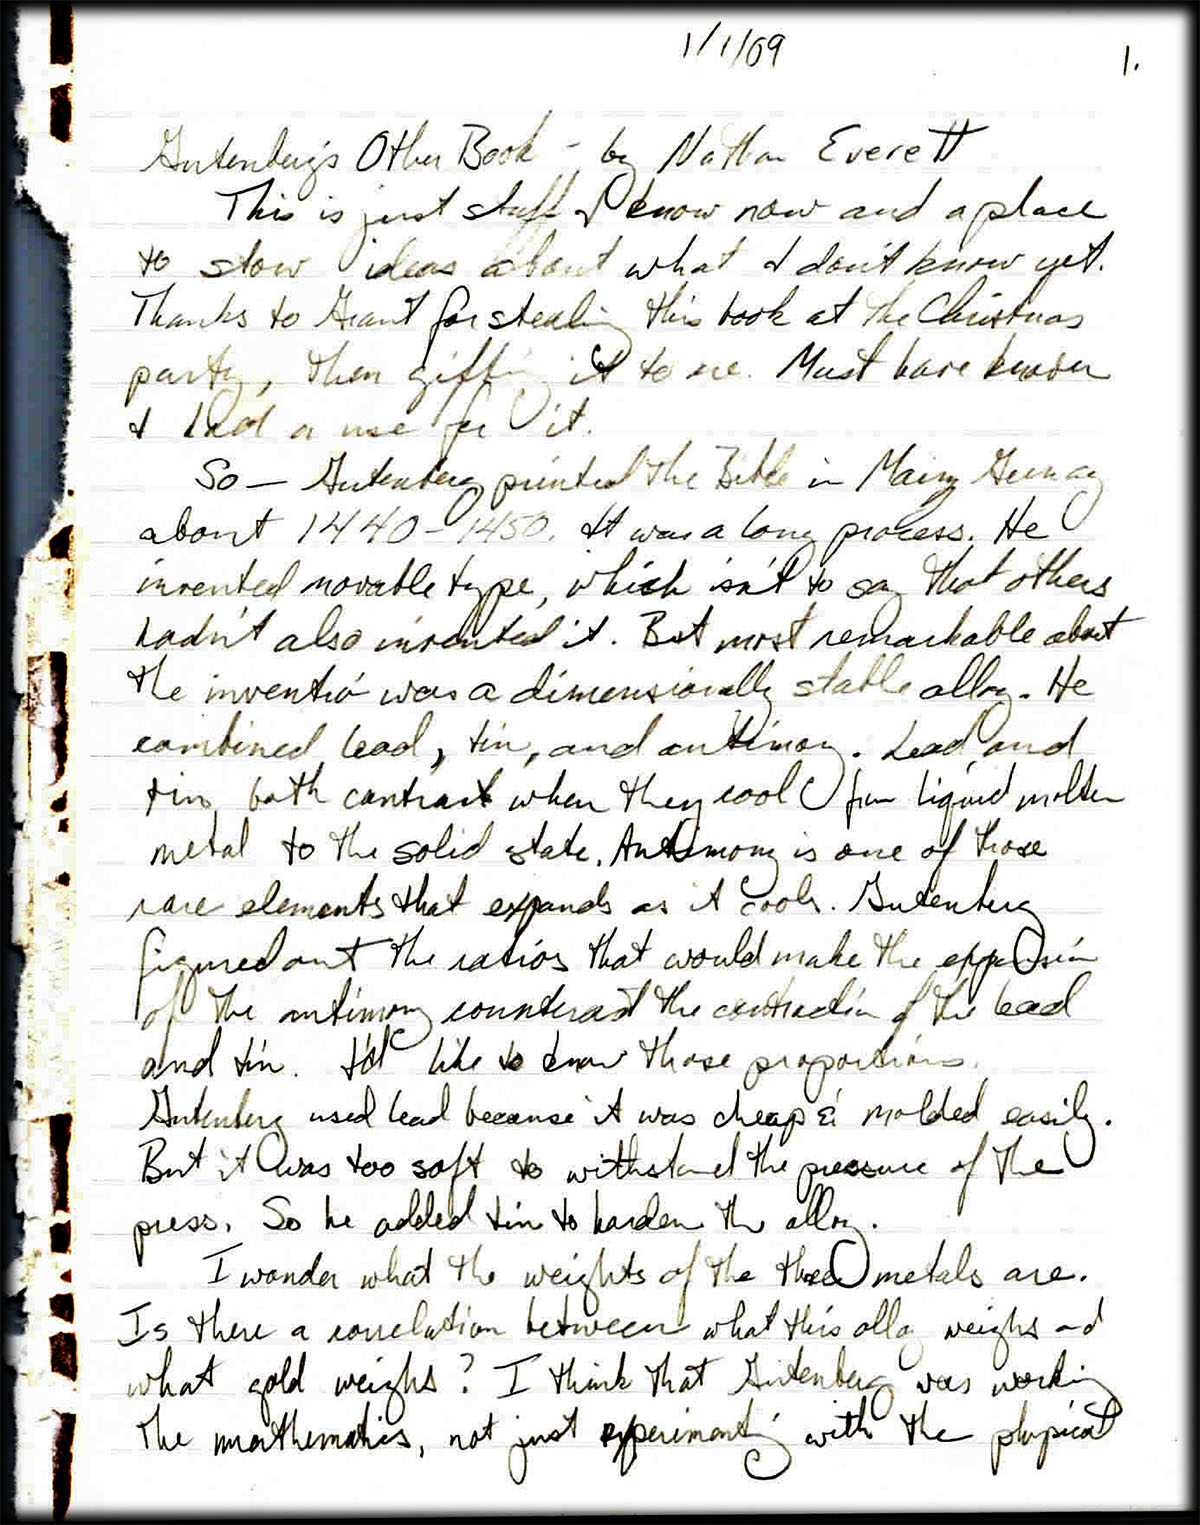 1/1/09
1.
Gutenberg's Other Book - by Nathan Everett
This is just stuff I know now and a place
to stow ideas about what I don't know yet.
Thanks to Grant for stealing this book at the Christmas
party, then gifting it to me. Must have known
I had a use for it.
So — Gutenberg printed the Bible in Mainz Germany
about 1440-1450. It was a long process. He
invented movable type, which isn't to say that others
hadn't also invented it. But most remarkable about
the invention was a dimensionally stable alloy. He
combined lead, tin, and antimony. Lead and
tin both contract when they cool from liquid molten
metal to the solid state. Antimony is one of those
rare elements that expands as it cools. Gutenberg
figured out the ratios that would make the expansion
of the antimony counteract the contraction of the lead
and tin. I'd like to know those proportions.
Gutenberg used lead because it was cheap & molded easily.
But it was too soft to withstand the pressure of the
press. So he added tin to harden the alloy.
I wonder what the weights of the three metals are.
Is there a correlation between what this alloy weighs and
what gold weighs? I think that Gutenberg was working
the mathematics, not just experimenting with the physical